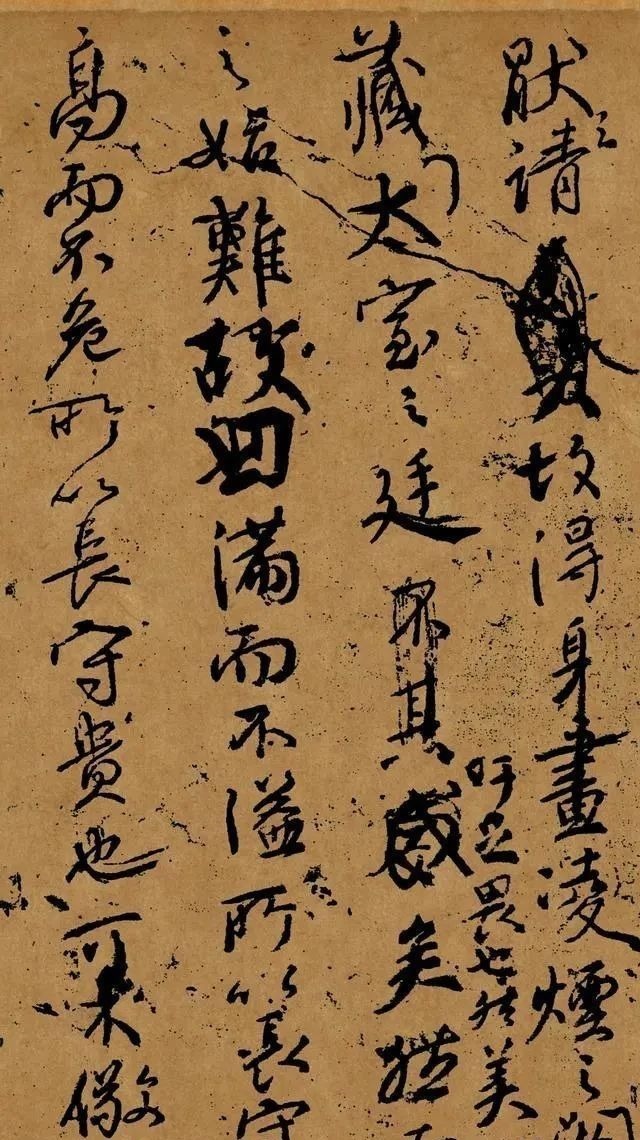 猒之請故得身畫凌煙之閣
吁足畏也然美
藏太室之廷其盛矣然
之始難故曰滿而不溢所以長守
高而不危所以長守貴也可不儆